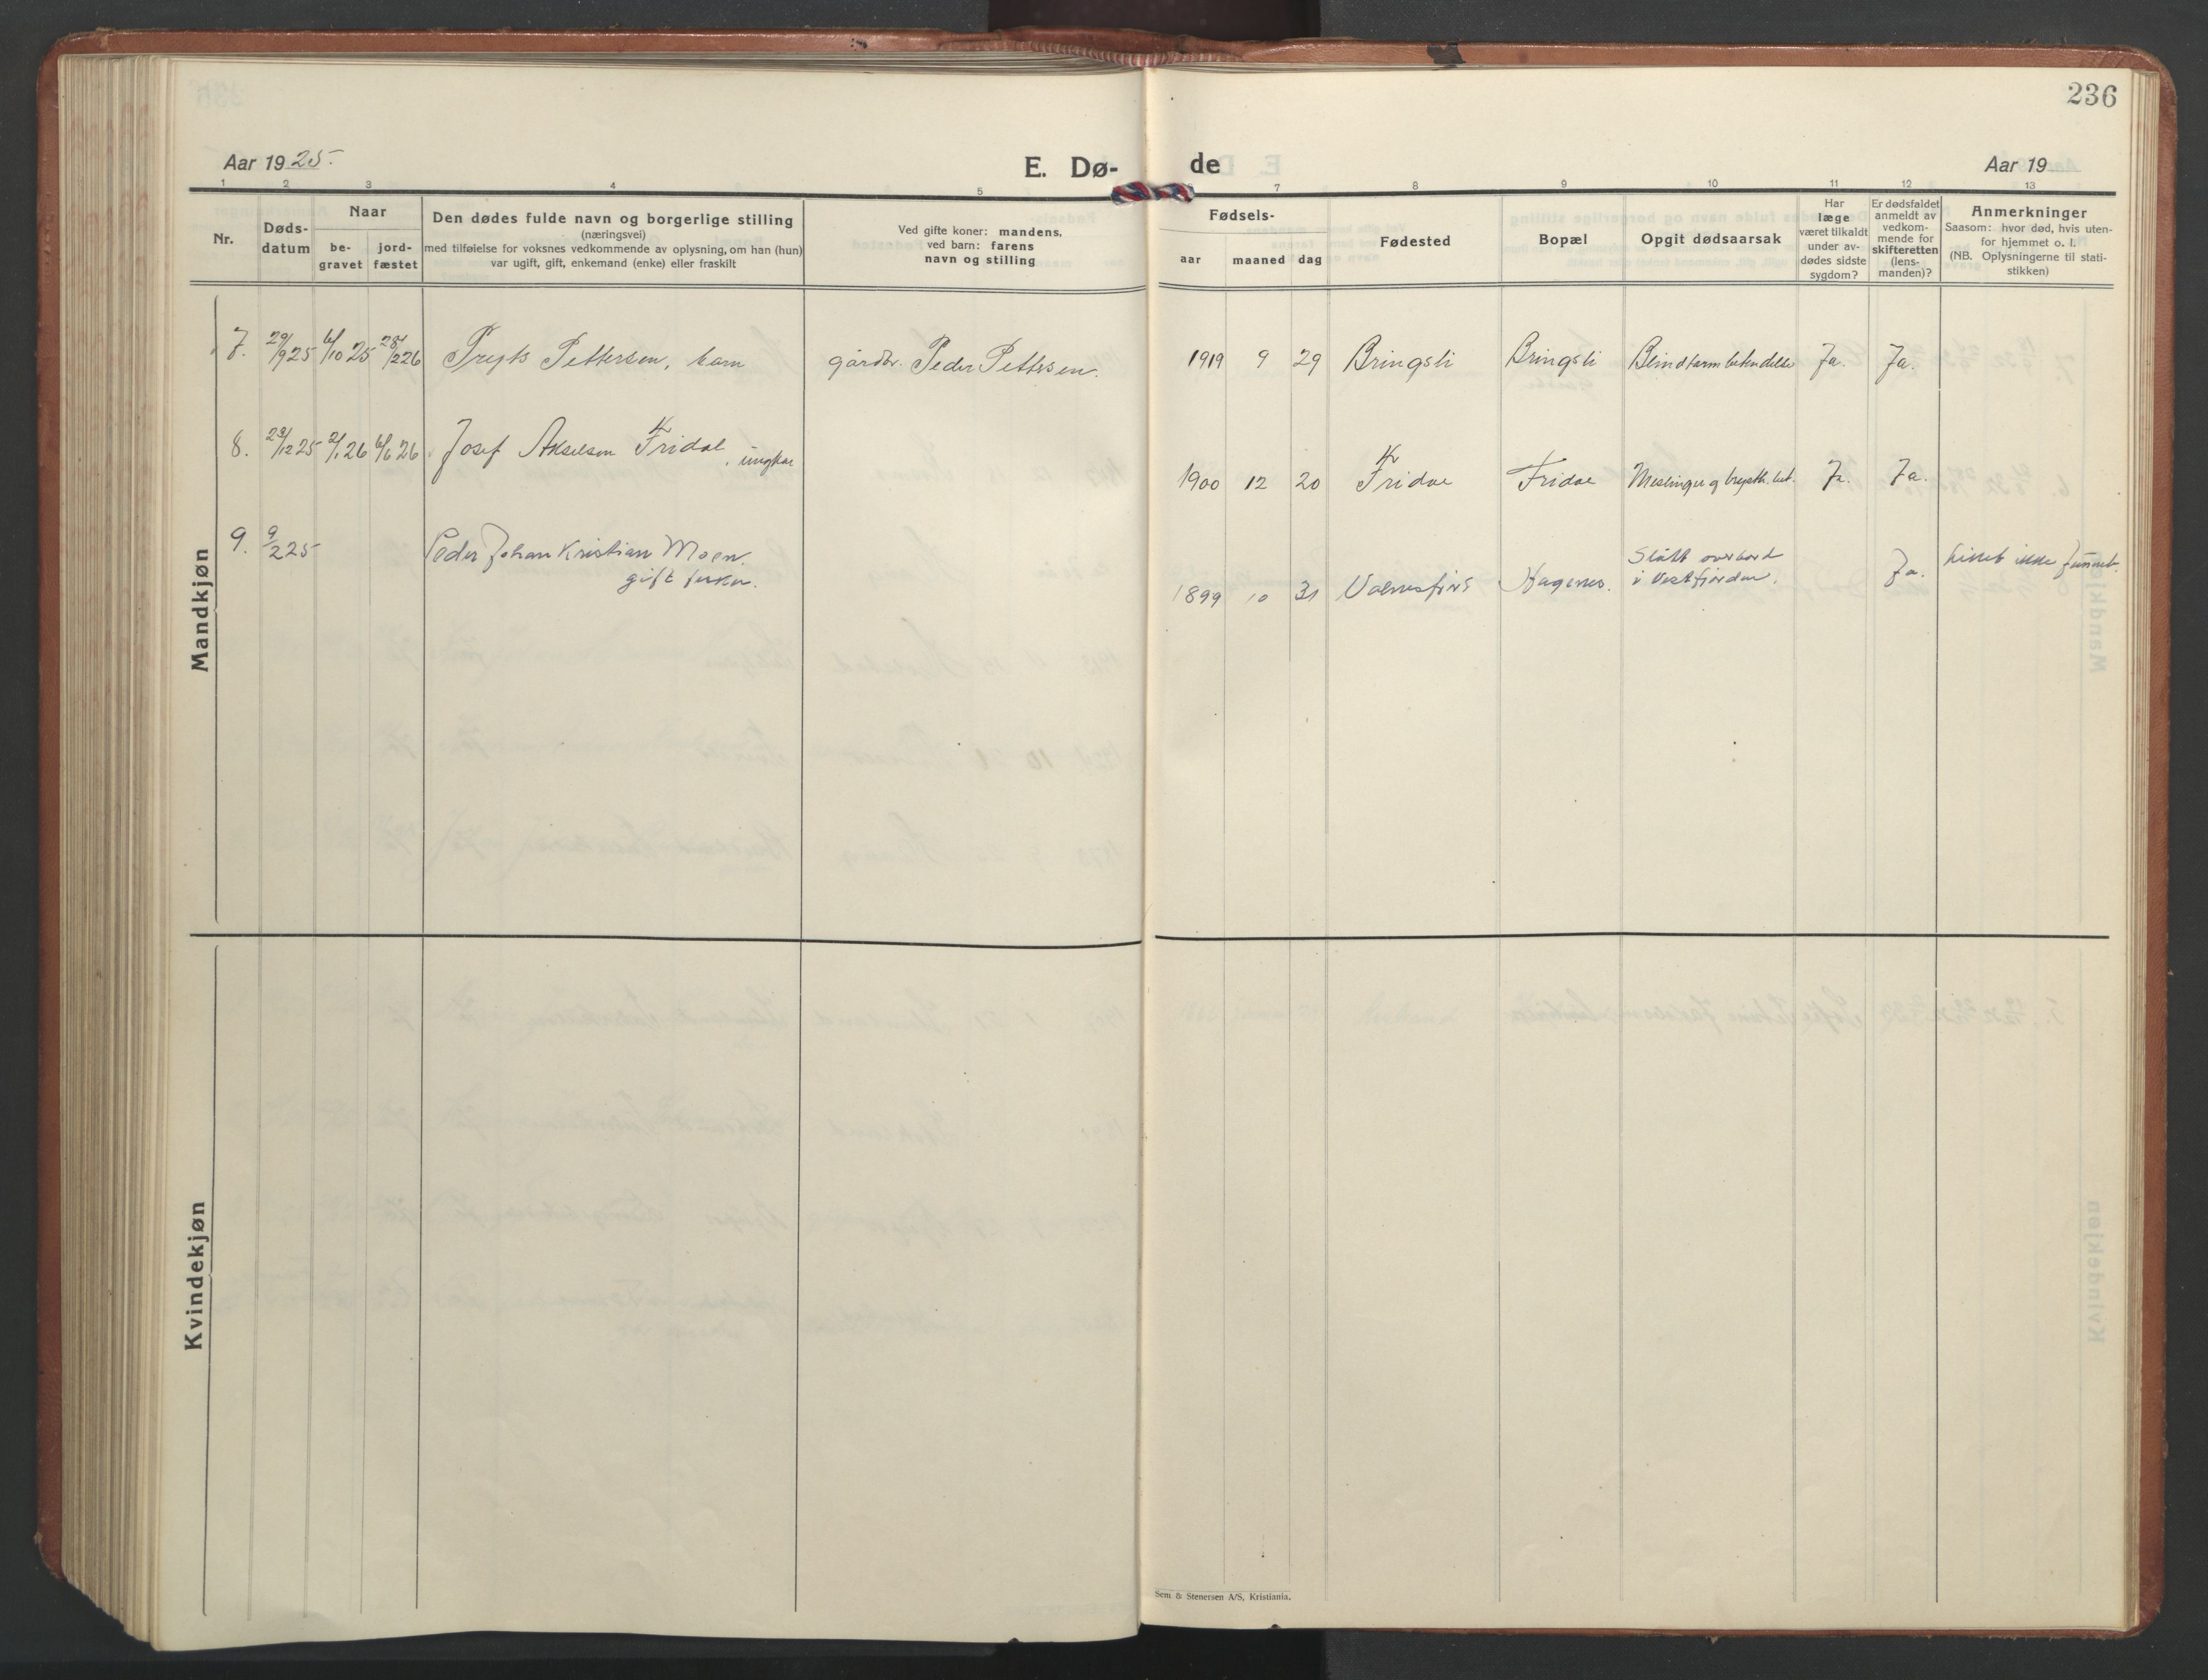 236
Aar 1925.
E. Dø- de
Aar 19
1 2 3 4 5 7 8 9 10 11 12 13
Nr.
Døds-
datum
Naar
be-
gravet
jord-
fæstet
Den dødes fulde navn og borgerlige stilling
(næringsvei)
med tilføielse for voksnes vedkommende av oplysning, om han (hun)
var ugift, gift, enkemand (enke) eller fraskilt
Ved gifte koner: mandens,
ved barn: farens
navn og stilling
Fødsels-
aar maaned dag
Fødested
Bopæl
Opgit dødsaarsak
Har
læge
været tilkaldt
under av-
dødes sidste
sygdom?
Er dødsfaldet
anmeldt av
vedkom-
mende for
skifteretten
(lens-
manden)?
Anmerkninger
Saasom: hvor død, hvis uten-
for hjemmet o. l.
(NB. Oplysningerne til stati-
stikken)
Mandkjøn
7. 29/9 25 6/10 25 28/2 26 Pettersen, barn gårdbr. Peder Pettersen. 1919 9 29 Bringsli Bringsli Blindtarmbetendelse Ja. Ja.
8. 23/12 25 2/1 26 6/6 26 Josef Akselsen Fridal, ungkar 1900 12 20 Fridal Fridal Meslinger og brysth. bet. Ja. Ja.
9. 9/2 25 Peder Johan Kristian Moen.
gift fisker.
1899 10 31 Valnesfjord Hagenes.
Slått overbord
i Vestfjorden.
Ja. Liket ikke funnet.
Kvindekjøn
Sem & Stenersen A/S, Kristiania.